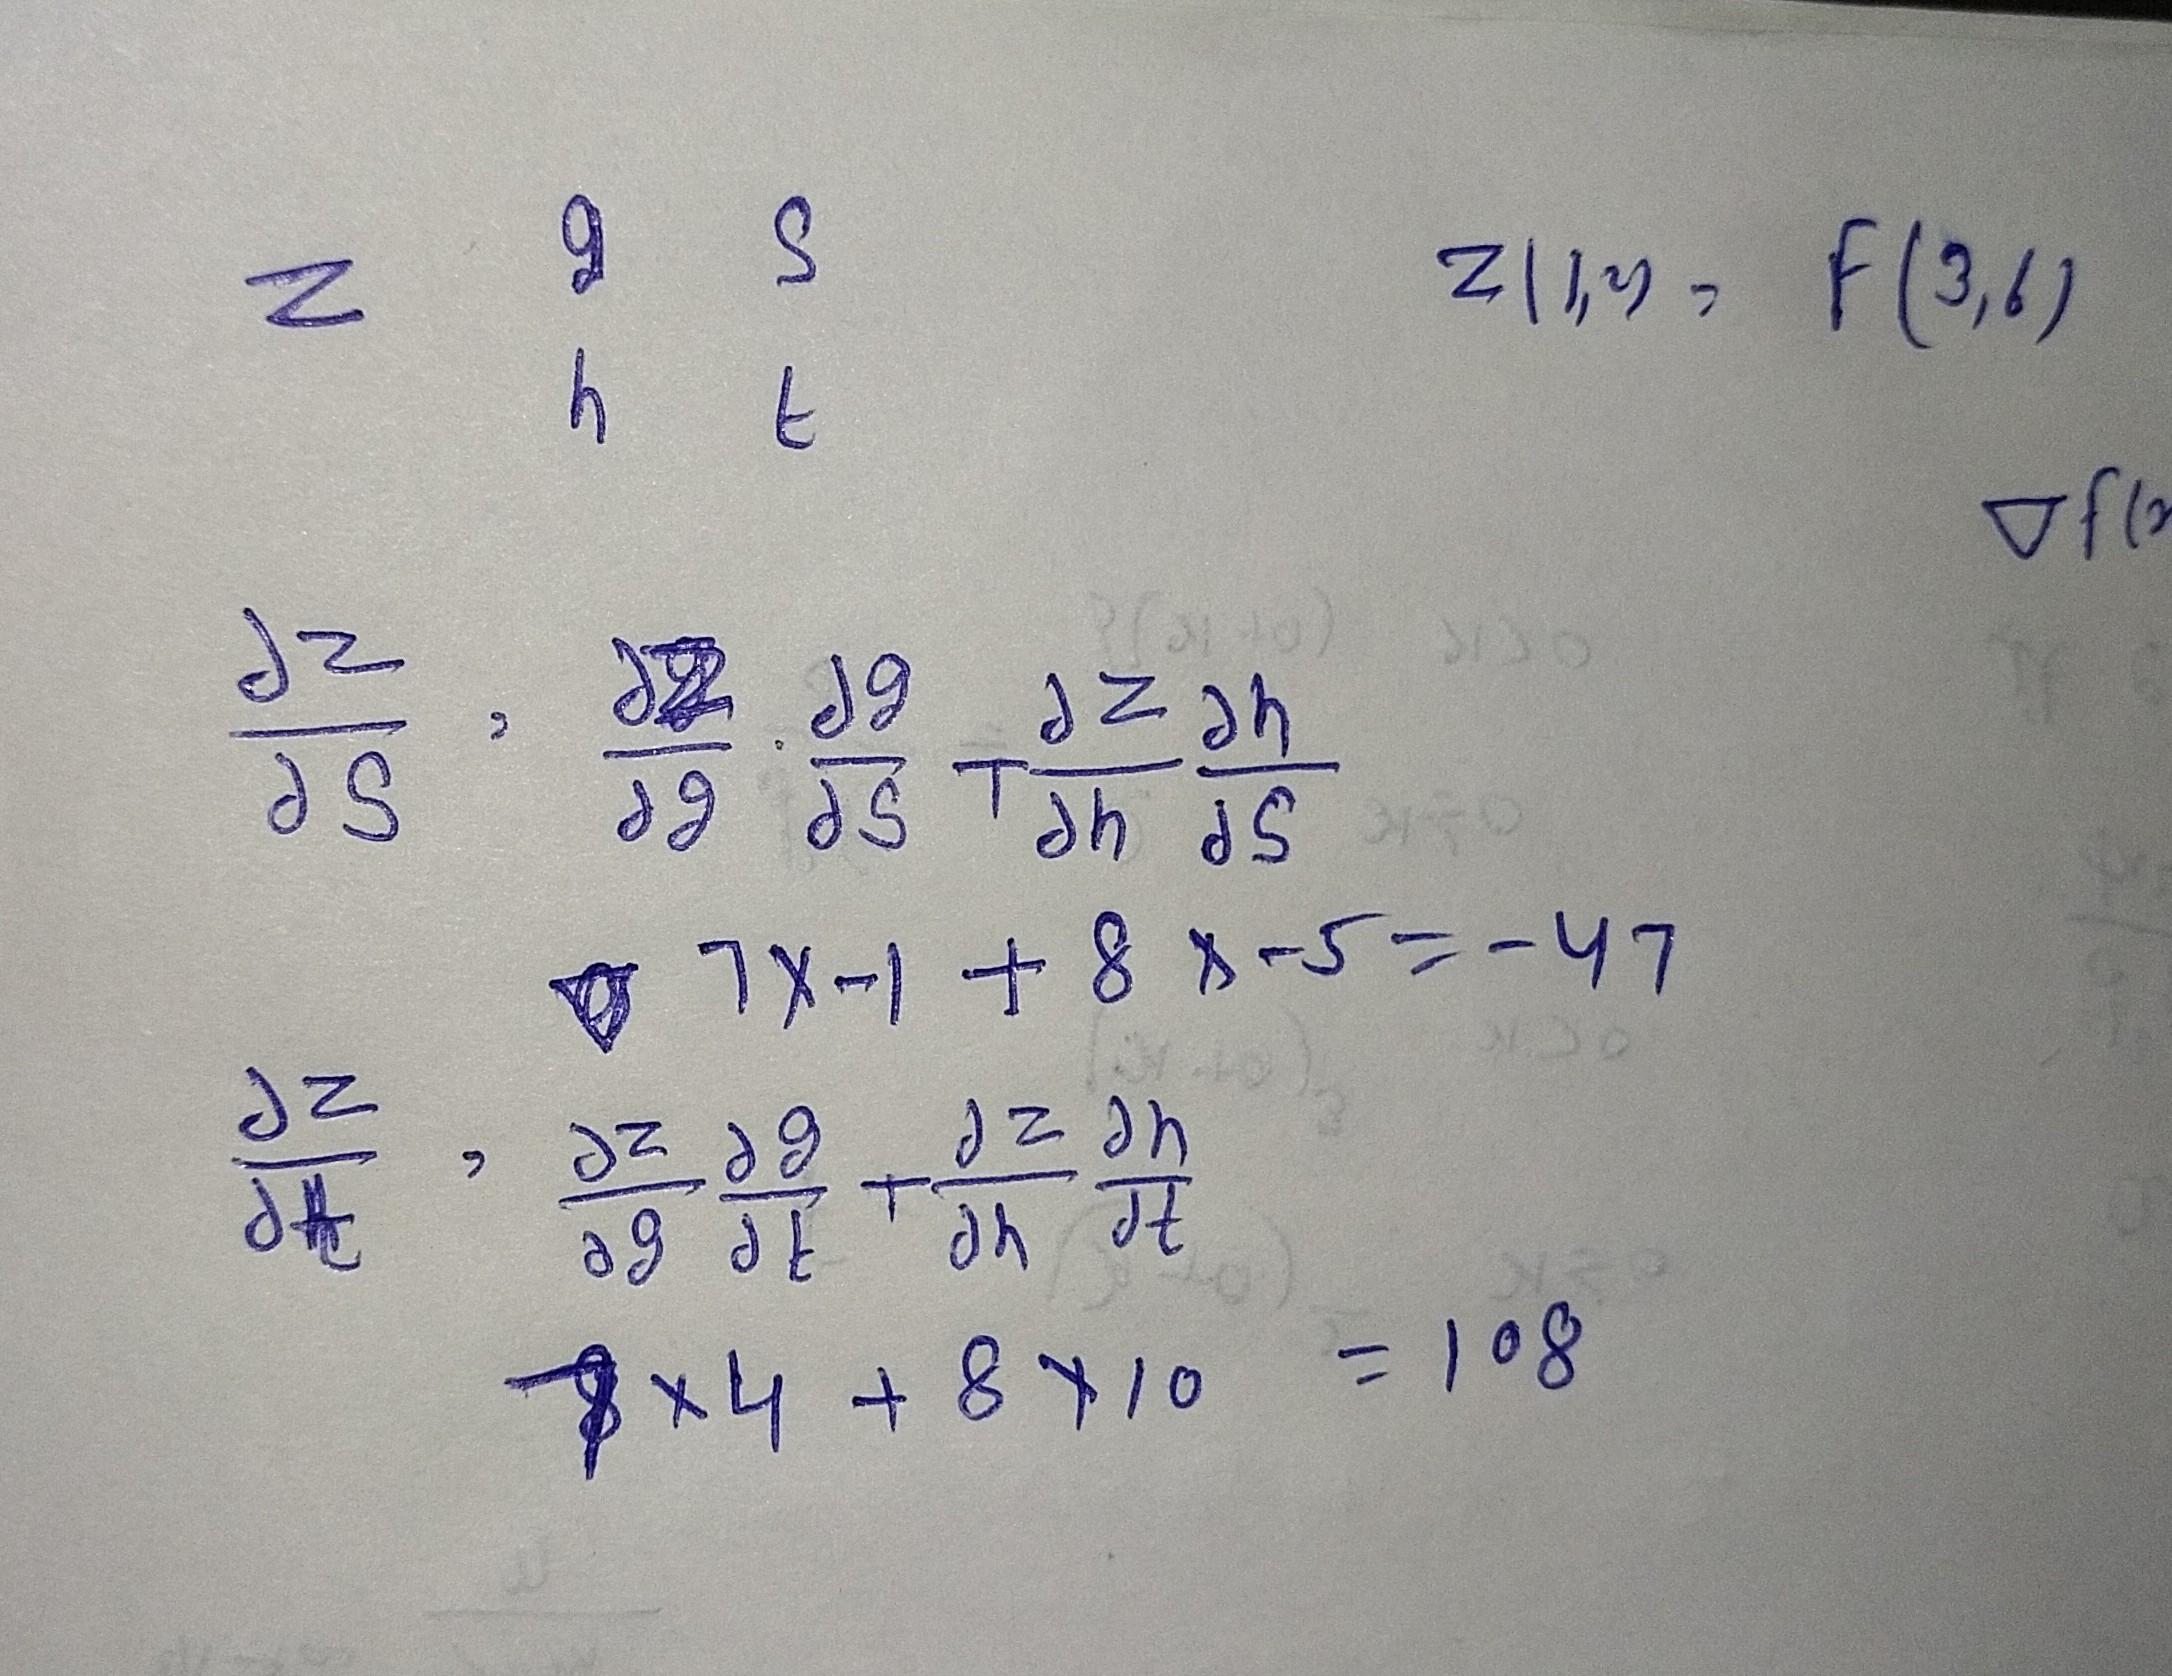 z g s z(1,2) = f(3,6)
h t
∇f(x
∂z/∂s = ∂z/∂g · ∂g/∂s + ∂z/∂h ∂h/∂s
7x-1 + 8 x-5 = -47
∂z/∂t = ∂z/∂g ∂g/∂t + ∂z/∂h ∂h/∂t
7x4 + 8x10 = 108